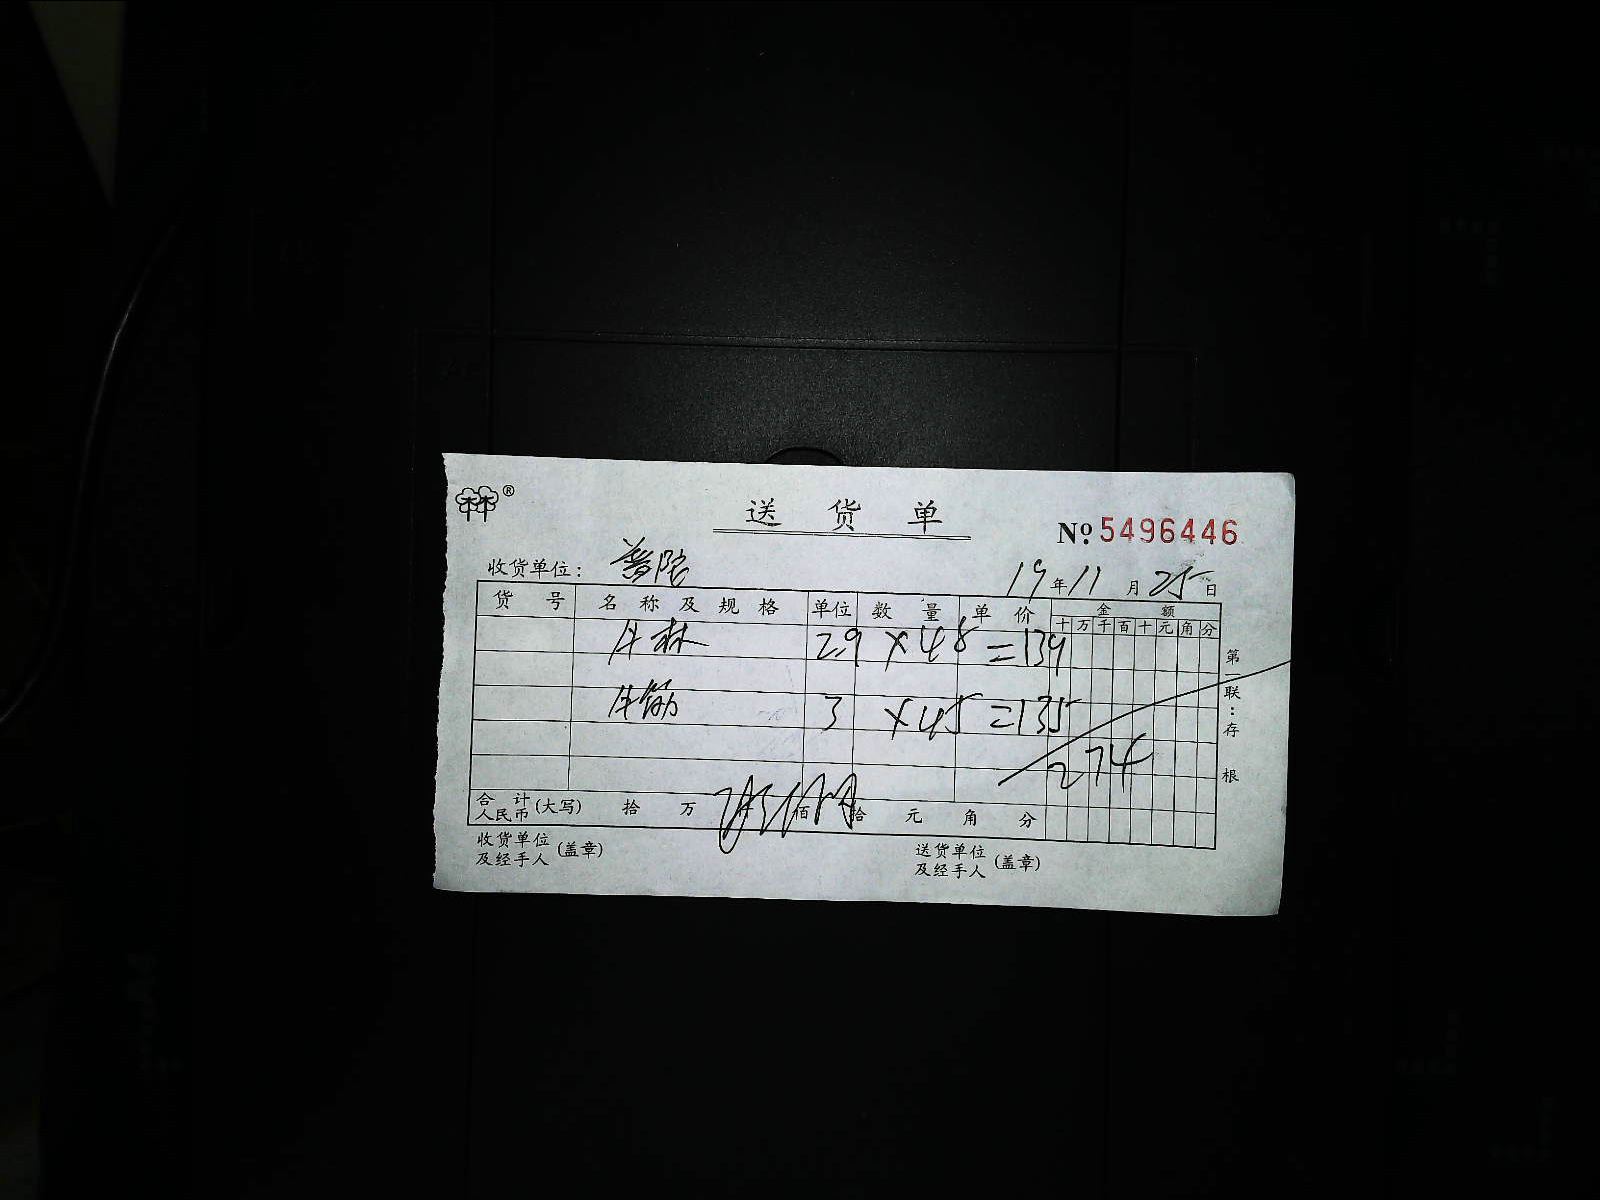 送 货 单
№ 5496446
收货单位： 普陀
19 年 11 月 25 日
货 号 名 称 及 规 格 单位 数 量 单 价 金 额
十 万 千 百 十 元 角 分
牛林 2.9 ×48 =139
牛筋 3 ×45 =135
274
合 计 人民币 (大写) 拾 万 仟 佰 拾 元 角 分
收货单位 及经手人 (盖章)
送货单位 及经手人 (盖章)
第一联：存根